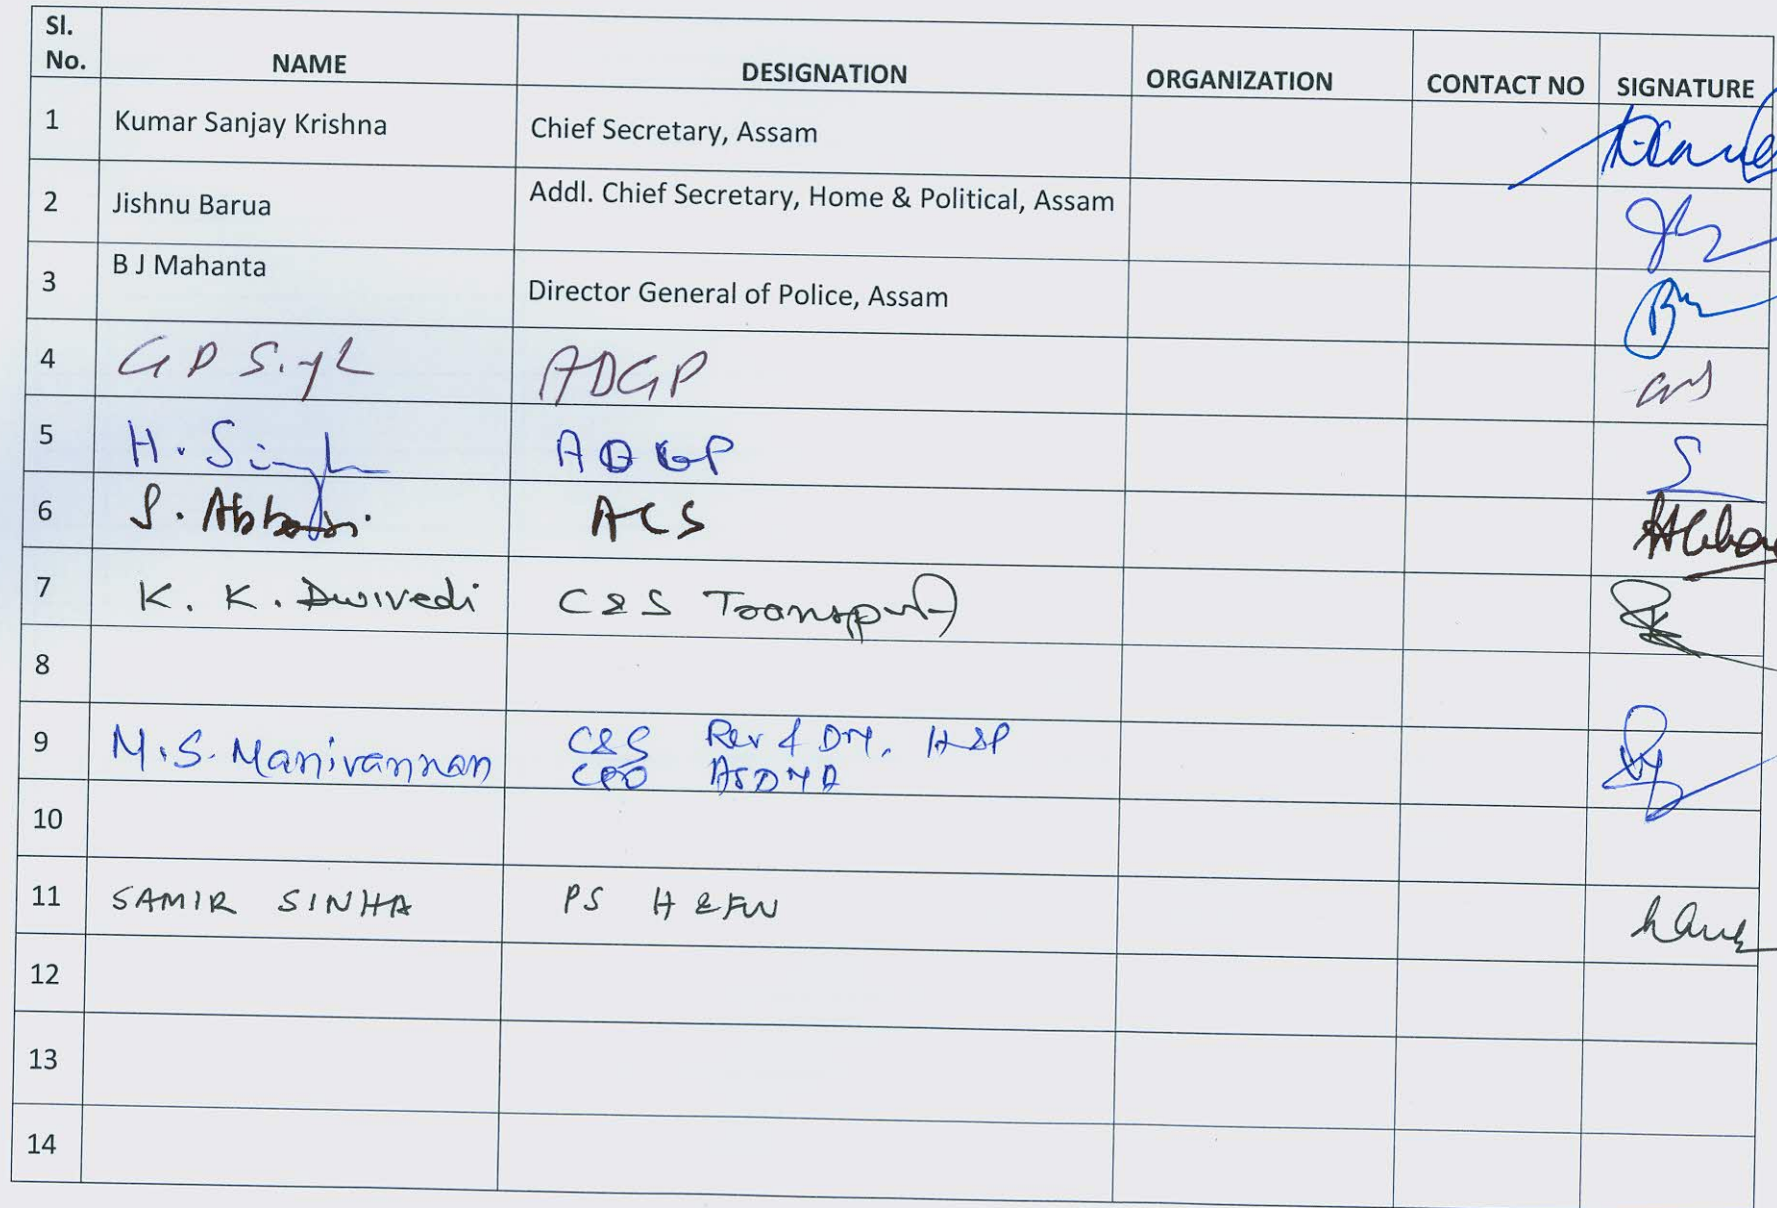 Sl. No. NAME DESIGNATION ORGANIZATION CONTACT NO SIGNATURE
1 Kumar Sanjay Krishna Chief Secretary, Assam
2 Jishnu Barua Addl. Chief Secretary, Home & Political, Assam
3 B J Mahanta Director General of Police, Assam
4 G P Singh ADGP
5 H. Singh ADGP
6 S. Abbasi. ACS
7 K. K. Dwivedi C&S Transport
8
9 M.S. Manivannan C&S Rev & DM,
CEO ASDMA
10
11 SAMIR SINHA PS H & FW
12
13
14